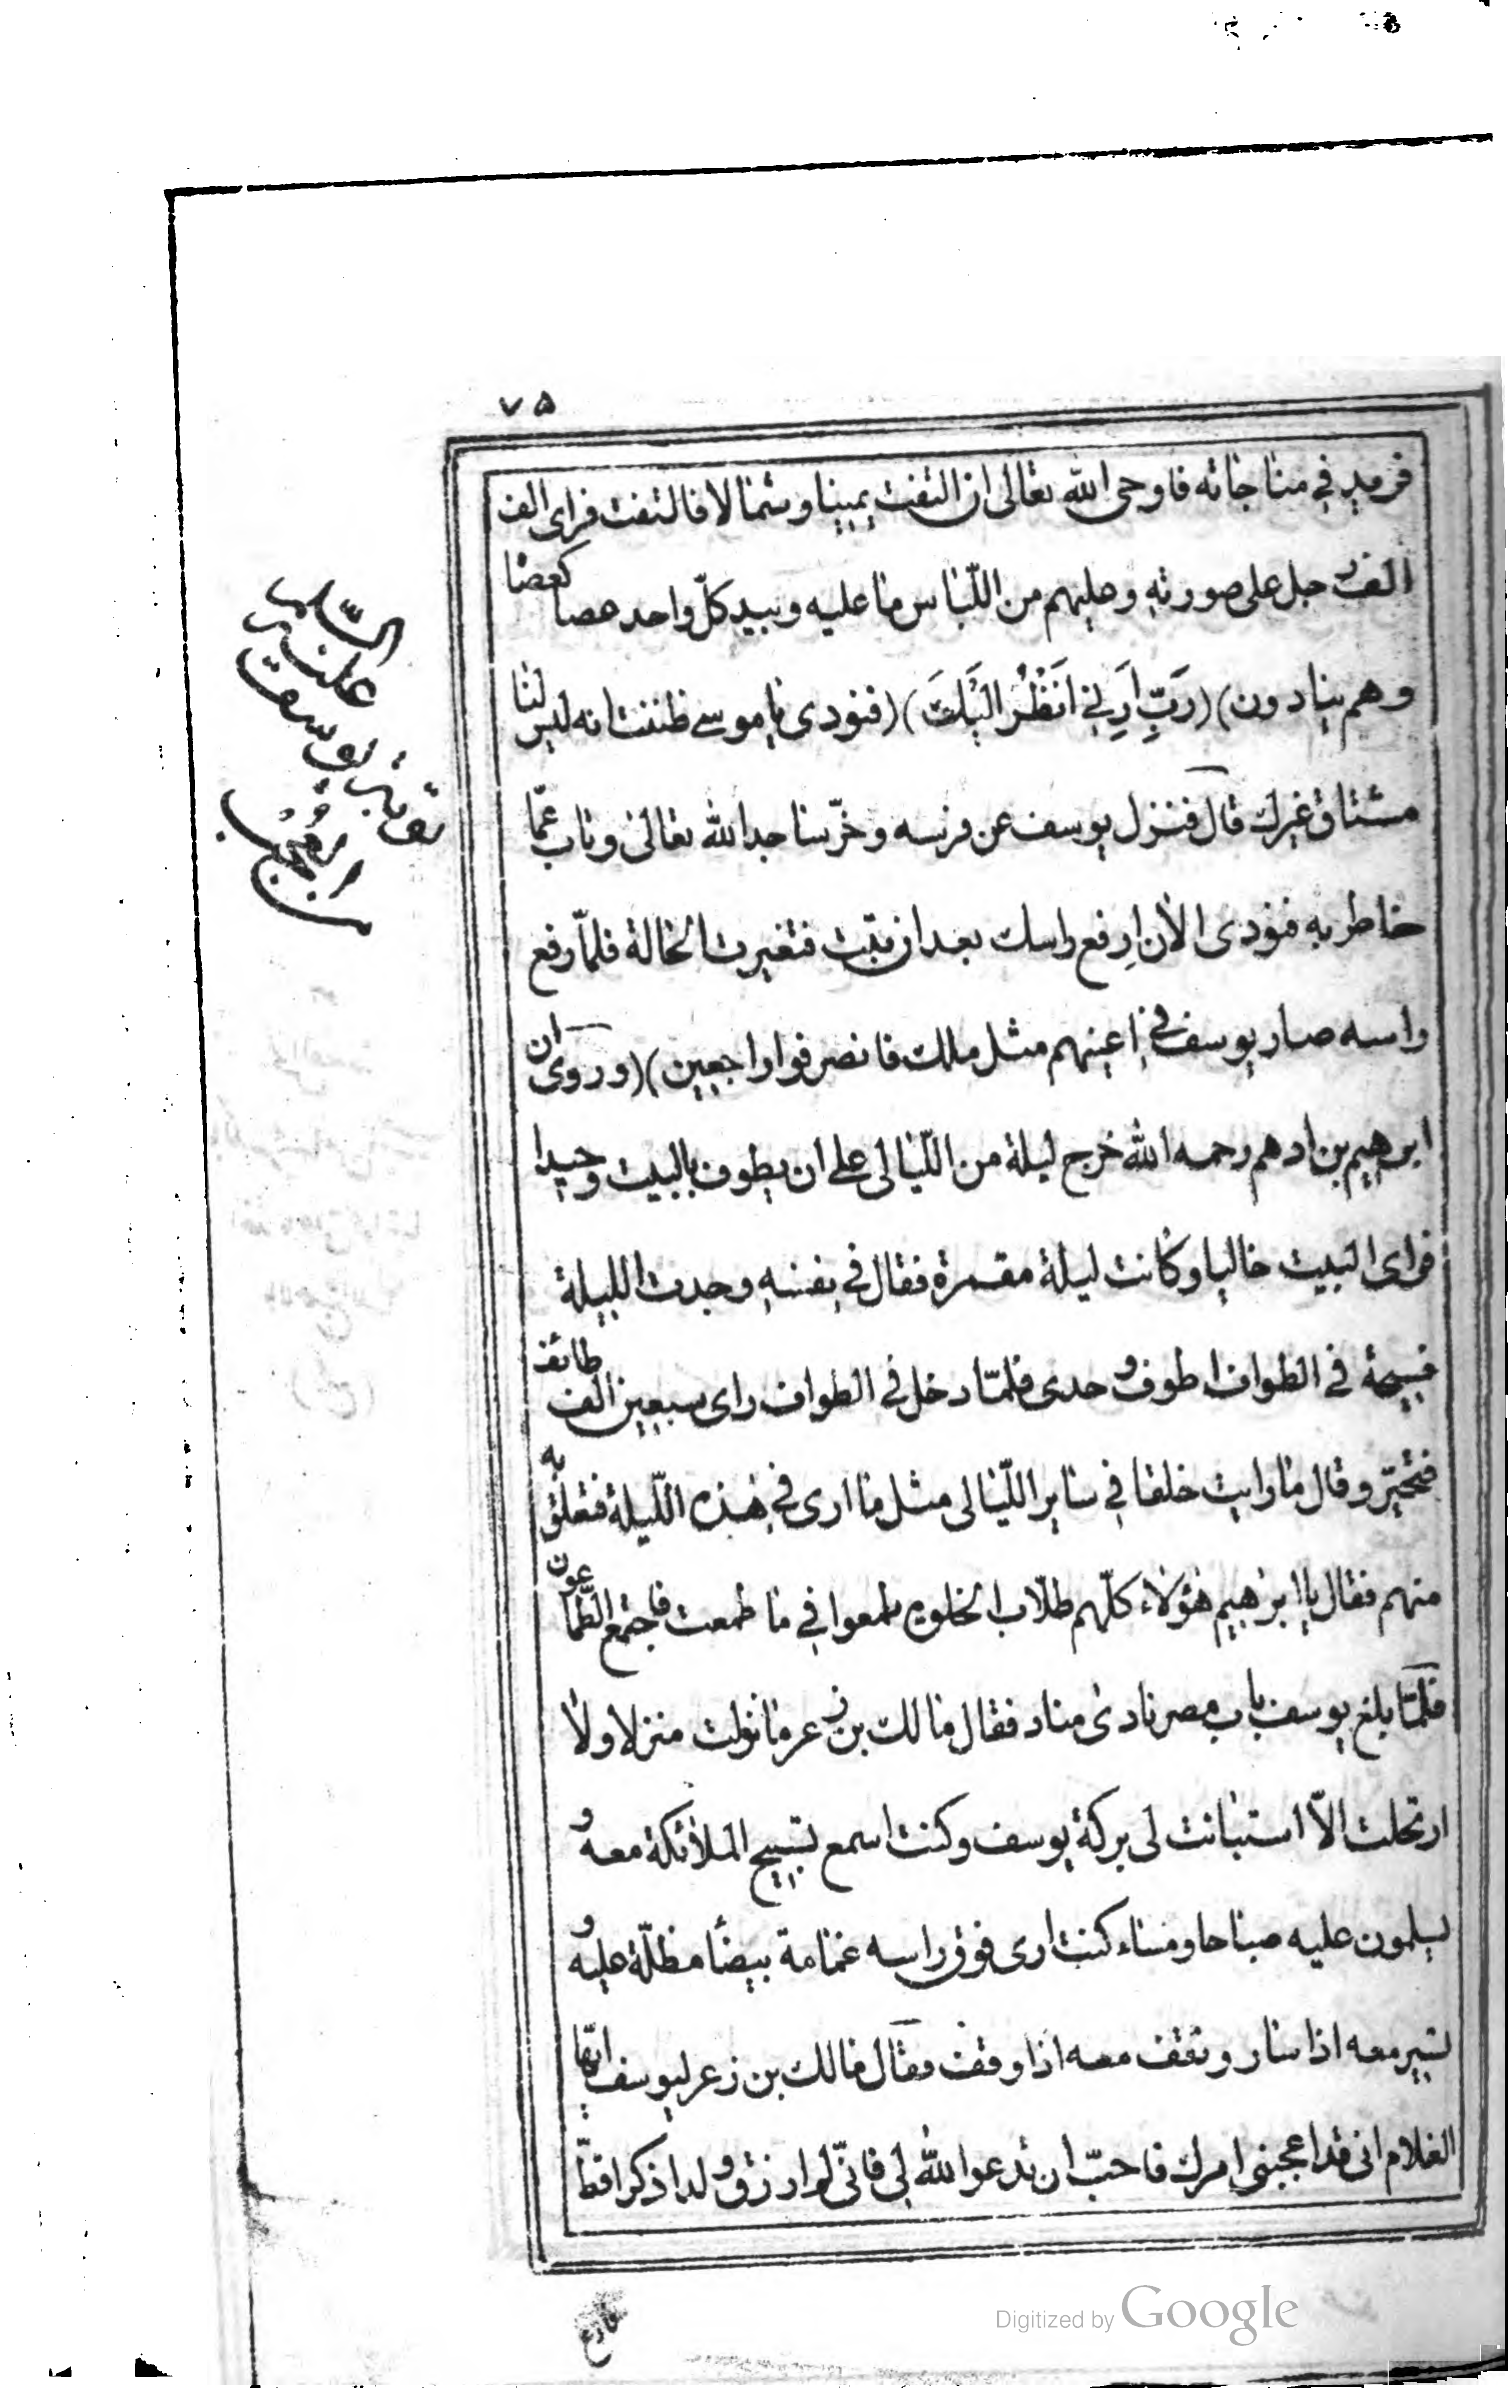 ٧٥
فريد في مناجاته فاوحى الله تعالى ان التفت يمينا وشمالا فالتفت فراى الف
الف رجل على صورته وعليهم من اللباس ما عليه وبيد كلّ واحد عصا كعصا
وهم ينادون) (رَبِّ اَرِنِي اَنْظُرْ اِلَيْكَ) (فنودى يا موسى ظننت انه ليس لنا
مشتاق غيرك قال فنزل يوسف عن فرسه وخرّ ساجدا لله تعالى وتاب عمّا
خاطر به فنودى الان اِرفع راسك بعد ان تبت فتغيرت الحالة فلمّا رفع
راسه صار يوسف في اعينهم مثل ملك فانصرفوا راجعين) (وروى ان
ابرهيم بن ادهم رحمه الله خرج ليلة من الليالى على ان يطوف بالبيت وحيدا
فراى البيت خاليا وكانت ليلة مقمرة فقال في نفسه وجدت الليلة
فسيحة في الطواف اطوف وحدى فلمّا دخل في الطواف راى سبعين الف طائف
فتحيّر وقال ما رايت خلقا في ساير الليالى مثل ما ارى في هذه الليلة فتعلق به
منهم فقال يا ابرهيم هؤلاء كلّهم طلّاب الخلوة طمعوا في ما طمعت فاجتمع الطّماعون
فلمّا بلغ يوسف باب مصر نادى مناد فقال مالك بن زعر ما نزلت منزلا ولا
ارتحلت الّا استبانت لى بركة يوسف وكنت اسمع تسبيح الملائكة معه و
يسلمون عليه صباحا ومساء كنت ارى فوق راسه غمامة بيضا مظلّة عليه و
تسير معه اذا سار وتقف معه اذا وقف فقال مالك بن زعر ليوسف ايّها
الغلام انى قد اعجبنى امرك فاحبّ ان تدعو الله لى فانّى لم ارزق ولدا ذكرا قطّ
توبة يوسف
عليه
السّلم
من العجب
Digitized by Google